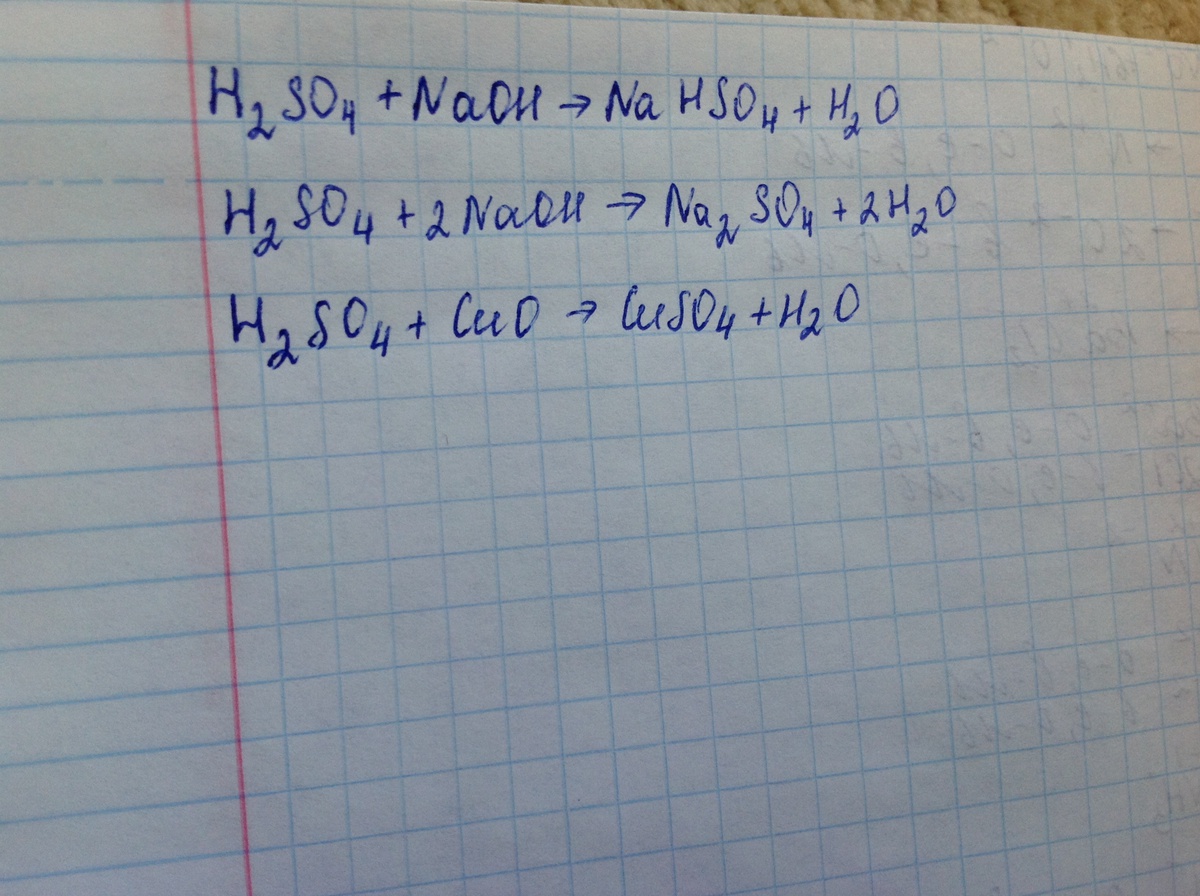 H₂SO₄ + NaOH → NaHSO₄ + H₂O
H₂SO₄ + 2NaOH → Na₂SO₄ + 2H₂O
H₂SO₄ + CuO → CuSO₄ + H₂O